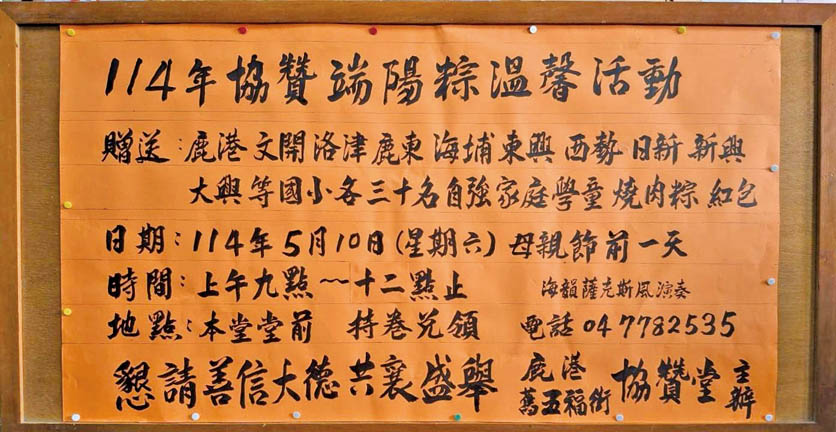 114年協贊端陽粽溫馨活動
贈送：鹿港 文開 洛津 鹿東 海埔 東興 西勢 日新 新興
大興等國小各三十名自強家庭學童燒肉粽 紅包
日期：114年5月10日(星期六) 母親節前一天
時間：上午九點～十二點止 海韻薩克斯風演奏
地點：本堂堂前 持卷兌領 電話 04 7782535
懇請善信大德共襄盛舉 鹿港舊五福街 協贊堂 主辦